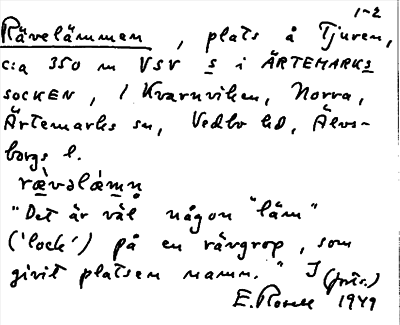 1-2
Rävelämmen, plats å Tjuren,
c:a 350 m VSV s i ÄRTEMARKS
SOCKEN, / Kvarnviken, Norra,
Ärtemarks sn, Vedbo hd, Älvs-
borgs l.
rævəlámn̥
"Det är väl någon "läm"
('lock') på en rävgrop, som
givit platsen namn." J
E. Rosell 1949